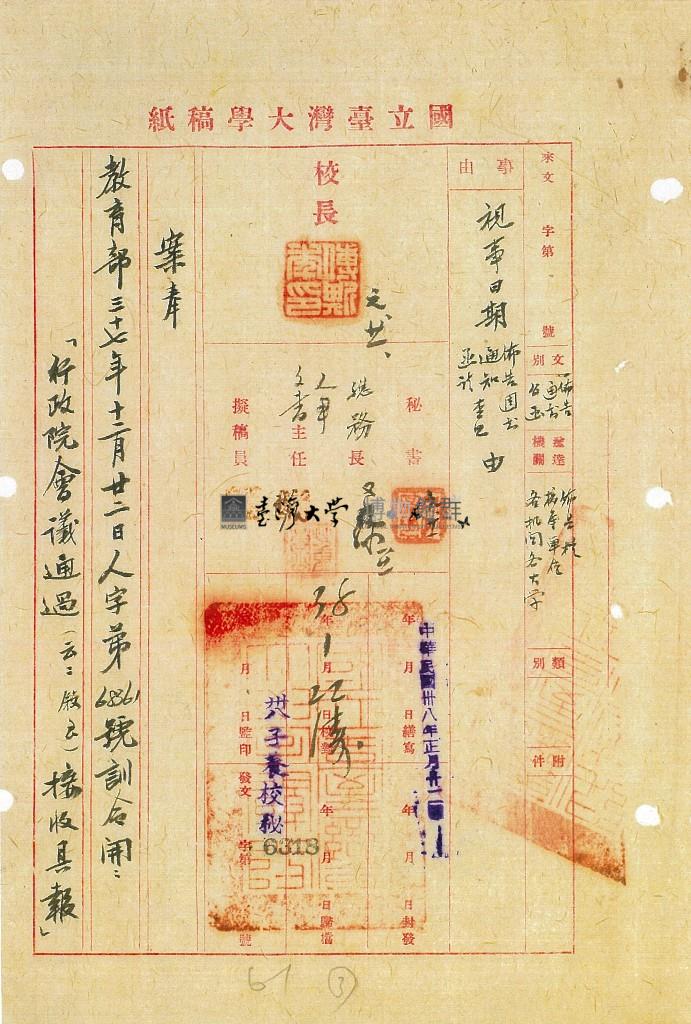 國立臺灣大學稿紙
來文 字第 號
文別
佈告
通知
公函
送達機關
佈告於
各機關各大學
類別
附件
事由
視事日期
佈告周知
通知
函請查照
由
校長
傅斯年印
元、廿一、
秘書
總務長
人事
文書
主任
擬稿員
臺灣大學
MUSEUMS
年 月 日繕寫
年 月 日校對
月 日監印
年 月 日封發
年 月 日歸檔
發文 字第 號
38
1
22
中華民國卅八年正月廿二
卅八子養校秘
6318
案奉
教育部三十七年十二月廿二日人字第68961號訓令開:
「行政院會議通過(云云敘至)接收具報」
61 ③